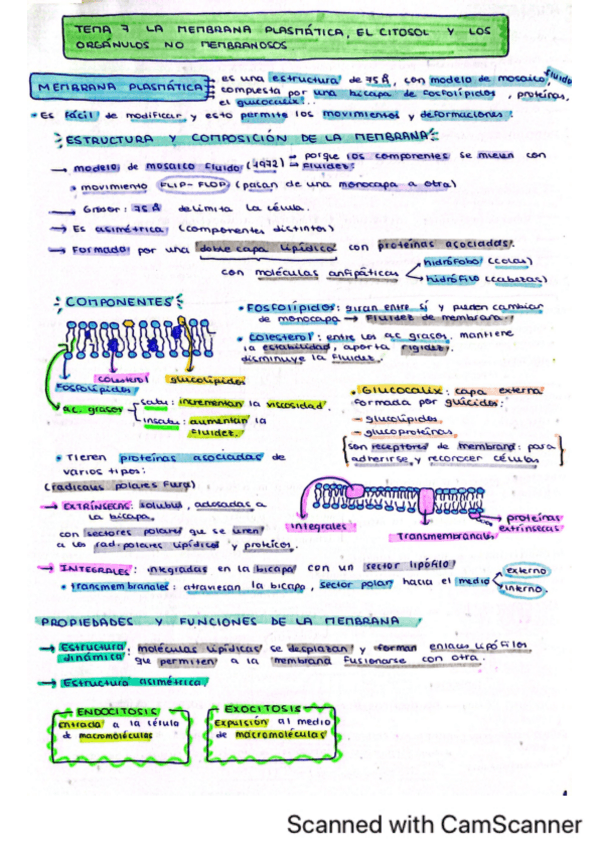 TEMA 7 LA MEMBRANA PLASMÁTICA, EL CITOSOL Y LOS
ORGÁNULOS NO MEMBRANOSOS
MEMBRANA PLASMÁTICA
es una estructura de 75 Å, con modelo de mosaico fluido
compuesta por una bicapa de fosfolípidos, proteínas,
el glucocalix...
• Es fácil de modificar y esto permite los movimientos y deformaciones!
ESTRUCTURA Y COMPOSICIÓN DE LA MEMBRANA
→ modelo de mosaico fluido (1972) → porque los componentes se mueven con
→ fluidez.
• movimiento FLIP-FLOP (pasan de una monocapa a otra)
→ Grosor: 75 Å delimita la célula.
→ Es asimétrica (componentes distintos)
→ Formada por una doble capa lipídica con proteínas asociadas.
con moléculas anfipáticas
hidrófobo (colas)
hidrófilo (cabezas)
COMPONENTES
• Fosfolípidos: giran entre sí y pueden cambiar
de monocapa → Fluidez de membrana!
• colesterol: entre los ac. grasos, mantiene
la estabilidad, aporta rigidez.
disminuye la fluidez.
colesterol
glucolípidos
fosfolípidos
ac. grasos
satu: incrementan la viscosidad.
insatu: aumentan la
fluidez.
• Glucocalix: capa externa
formada por glúcidos:
- glucolípidos
- glucoproteínas
son receptores de membrana: para
adherirse y reconocer células
• Tienen proteínas asociadas de
varios tipos:
(radicales polares fuera)
→ EXTRÍNSECAS: solubles, adosadas a
la bicapa.
con sectores polares que se unen
a los rad. polares lipídicos y proteicos.
Integrales
Transmembranales
proteínas
extrínsecas
→ INTEGRALES: integradas en la bicapa con un sector lipófilo
• transmembranales: atraviesan la bicapa, sector polar hacia el medio
externo
interno.
PROPIEDADES Y FUNCIONES DE LA MEMBRANA
→ Estructura
dinámica: moléculas lipídicas se desplazan y forman enlaces lipófilos
que permiten a la membrana fusionarse con otra.
→ Estructura asimétrica.
ENDOCITOSIS
Entrada a la célula
de macromoléculas
EXOCITOSIS
Expulsión al medio
de macromoléculas
Scanned with CamScanner